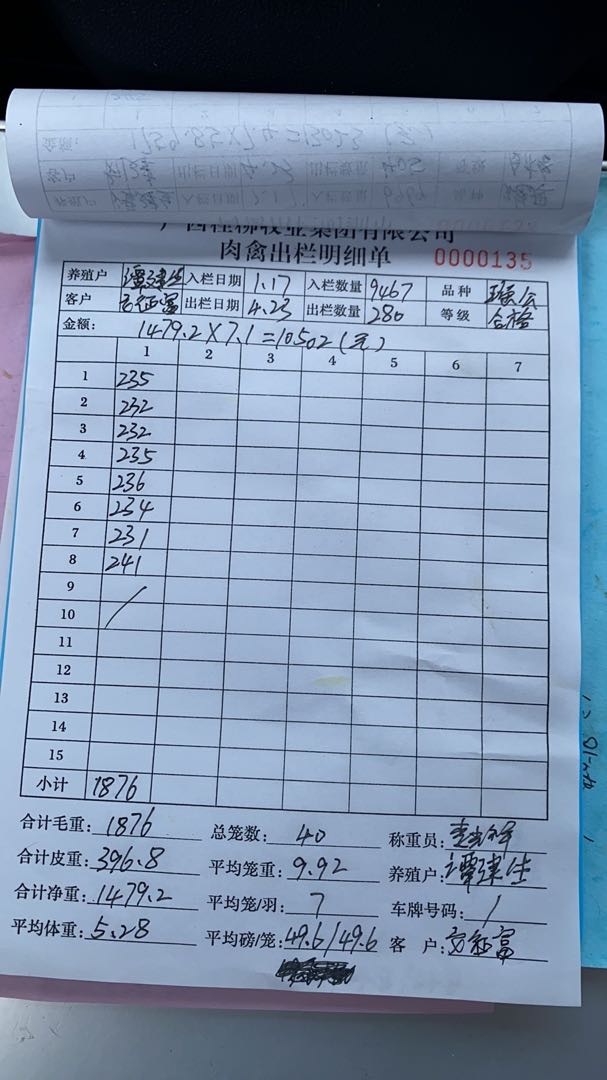 广西桂柳牧业集团有限公司
肉禽出栏明细单 0000135
养殖户 谭建生 入栏日期 1.17 入栏数量 9467 品种
客户 出栏日期 4.23 出栏数量 280 等级 合格
金额: 1479.2×7.1=10502(元)
1 2 3 4 5 6 7
1 235
2 232
3 232
4 235
5 236
6 234
7 231
8 241
9
10
11
12
13
14
15
小计 1876
合计毛重: 1876 总笼数: 40 称重员:
合计皮重: 396.8 平均笼重: 9.92 养殖户: 谭建生
合计净重: 1479.2 平均笼/羽: 7 车牌号码: /
平均体重: 5.28 平均磅/笼: 49.6/49.6 客 户: